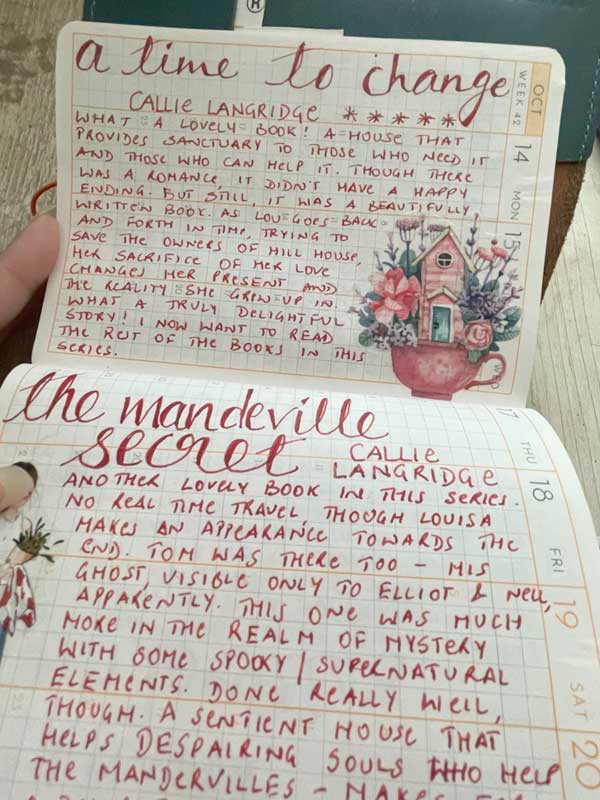 ®
a time to change
CALLIE LANGRIDGE *****
WHAT A LOVELY BOOK! A HOUSE THAT
PROVIDES SANCTUARY TO THOSE WHO NEED IT
AND THOSE WHO CAN HELP IT. THOUGH THERE
WAS A ROMANCE, IT DIDN'T HAVE A HAPPY
ENDING. BUT STILL, IT WAS A BEAUTIFULLY
WRITTEN BOOK. AS LOU GOES BACK
AND FORTH IN TIME, TRYING TO
SAVE THE OWNERS OF HILL HOUSE,
HER SACRIFICE OF HER LOVE
CHANGES HER PRESENT AND
THE REALITY SHE GREW UP IN.
WHAT A TRULY DELIGHTFUL
STORY! I NOW WANT TO READ
THE REST OF THE BOOKS IN THIS
SERIES.
OCT
WEEK 42
14
MON
15
WED
the mandeville
secret
CALLIE
LANGRIDGE
ANOTHER LOVELY BOOK IN THIS SERIES.
NO REAL TIME TRAVEL THOUGH LOUISA
MAKES AN APPEARANCE TOWARDS THE
END. TOM WAS THERE TOO – HIS
GHOST, VISIBLE ONLY TO ELLIOT & NELL,
APPARENTLY. THIS ONE WAS MUCH
MORE IN THE REALM OF MYSTERY
WITH SOME SPOOKY / SUPERNATURAL
ELEMENTS. DONE REALLY WELL,
THOUGH. A SENTIENT HOUSE THAT
HELPS DESPAIRING SOULS WHO HELP
THE MANDERVILLES – MAKES
17
THU
18
FRI
19
SAT
20